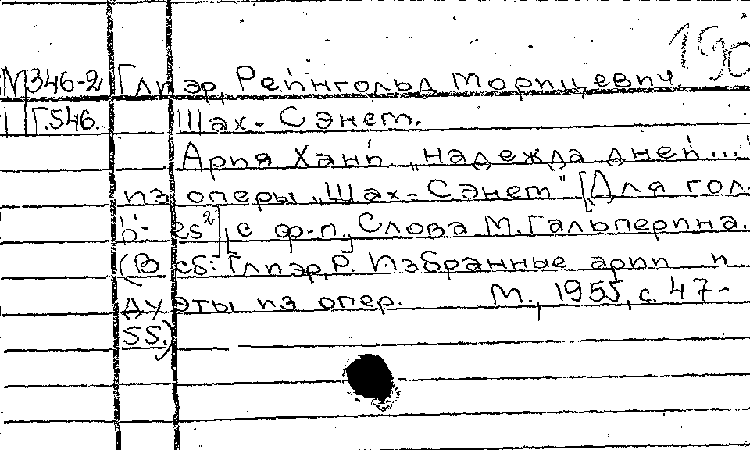 190
М346-2 Глиэр, Рейнгольд Морицевич
Г.546. Шах-Сэнем.
Ария Хани „Надежда дней...
из оперы „Шах-Сэнем" [Для гол.
b - es²] с ф-п., Слова М. Гальперина.
(В сб: Глиэр, Р. Избранные арии и
дуэты из опер. М., 1955, с 47-
55.)